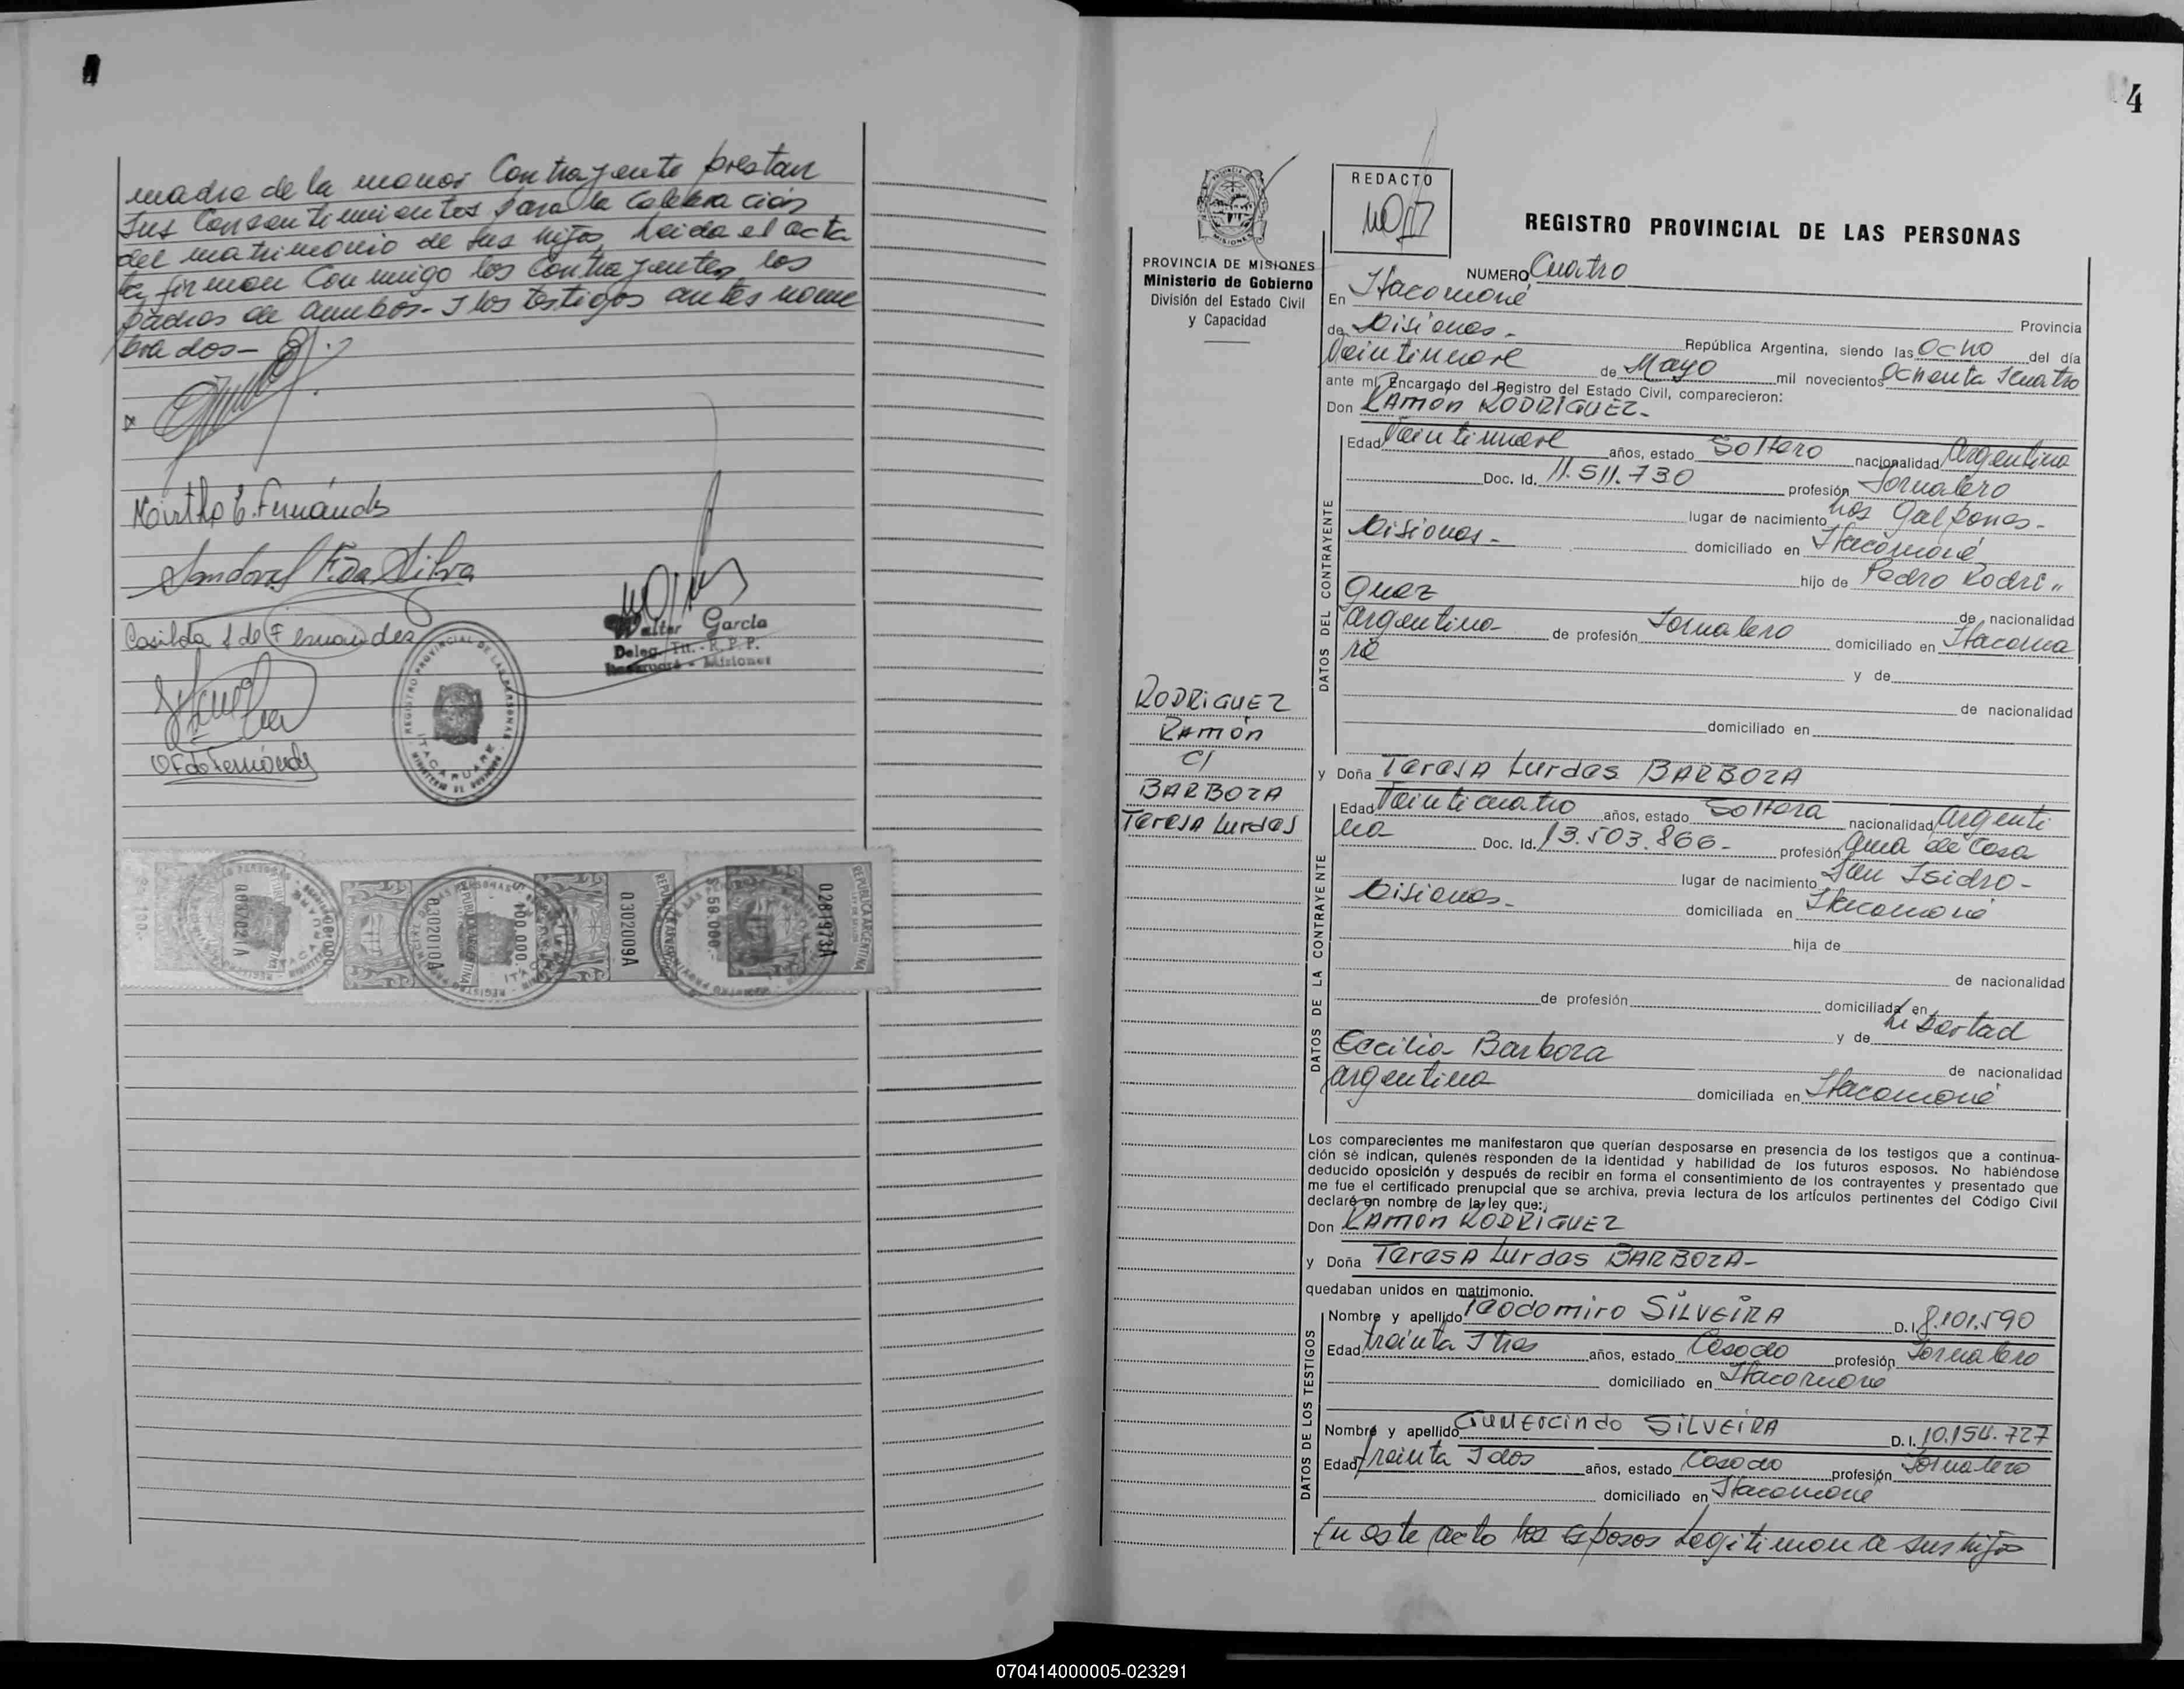 madre de la menor Contrayente prestan
sus Consentimientos para la Celebración
del matrimonio de sus hijos, Leida el acta
la firman Conmigo los Contrayentes, los
padres de ambos- y los testigos antes nom
brados-
Mirtha E. Fernández
Sandoval F. Da Silva
Casilda S de Fernandez
Walter García
Deleg. Tit. - R. P. P.
Itacaruaré - Misiones
REGISTRO PROVINCIAL DE LAS PERSONAS
ITACARUARE
0302010A
100.000
0302009A
REPUBLICA ARGENTINA
50.000
0281973A
REPUBLICA ARGENTINA
4
PROVINCIA DE MISIONES
Ministerio de Gobierno
División del Estado Civil
y Capacidad
REDACTO
REGISTRO PROVINCIAL DE LAS PERSONAS
NUMERO Cuatro
En Itacaruaré Provincia
de Misiones.- República Argentina, siendo las Ocho del día
Veintinueve de Mayo mil novecientos Ochenta y cuatro
ante mí, Encargado del Registro del Estado Civil, comparecieron:
Don RAMÓN RODRIGUEZ-
DATOS DEL CONTRAYENTE
Edad Veintinueve años, estado Soltero nacionalidad Argentina
Doc. Id. 11.511.730 profesión Jornalero
lugar de nacimiento Los Galpones-
Misiones- domiciliado en Itacaruaré
hijo de Pedro Rodri"
guez de nacionalidad
Argentina de profesión Jornalero domiciliado en Itacarua
ré y de
de nacionalidad
domiciliado en
RODRIGUEZ
RAMÓN
C/
BARBOZA
Teresa Lurdes
y Doña Teresa Lurdes BARBOZA
DATOS DE LA CONTRAYENTE
Edad Veinticuatro años, estado Soltera nacionalidad Argenti
na Doc. Id. 13.503.866- profesión Ama de Casa
lugar de nacimiento San Isidro-
Misiones- domiciliada en Itacaruaré
hija de
de nacionalidad
de profesión domiciliada en
y de Libertad
Cecilia Barboza de nacionalidad
Argentina domiciliada en Itacaruaré
Los comparecientes me manifestaron que querían desposarse en presencia de los testigos que a continua-
ción se indican, quienes responden de la identidad y habilidad de los futuros esposos. No habiéndose
deducido oposición y después de recibir en forma el consentimiento de los contrayentes y presentado que
me fue el certificado prenupcial que se archiva, previa lectura de los artículos pertinentes del Código Civil
declaré en nombre de la ley que:
Don RAMÓN RODRIGUEZ
y Doña Teresa Lurdes BARBOZA-
quedaban unidos en matrimonio.
DATOS DE LOS TESTIGOS
Nombre y apellido Teodomiro SILVEIRA D.I. 8.101.590
Edad treinta y tres años, estado Casado profesión Jornalero
domiciliado en Itacaruaré
Nombre y apellido GUMERCINDO SILVEIRA D.I. 10.154.727
Edad treinta y dos años, estado Casado profesión Jornalero
domiciliado en Itacaruaré
En este acto los esposos Legitiman a sus hijos
070414000005-023291